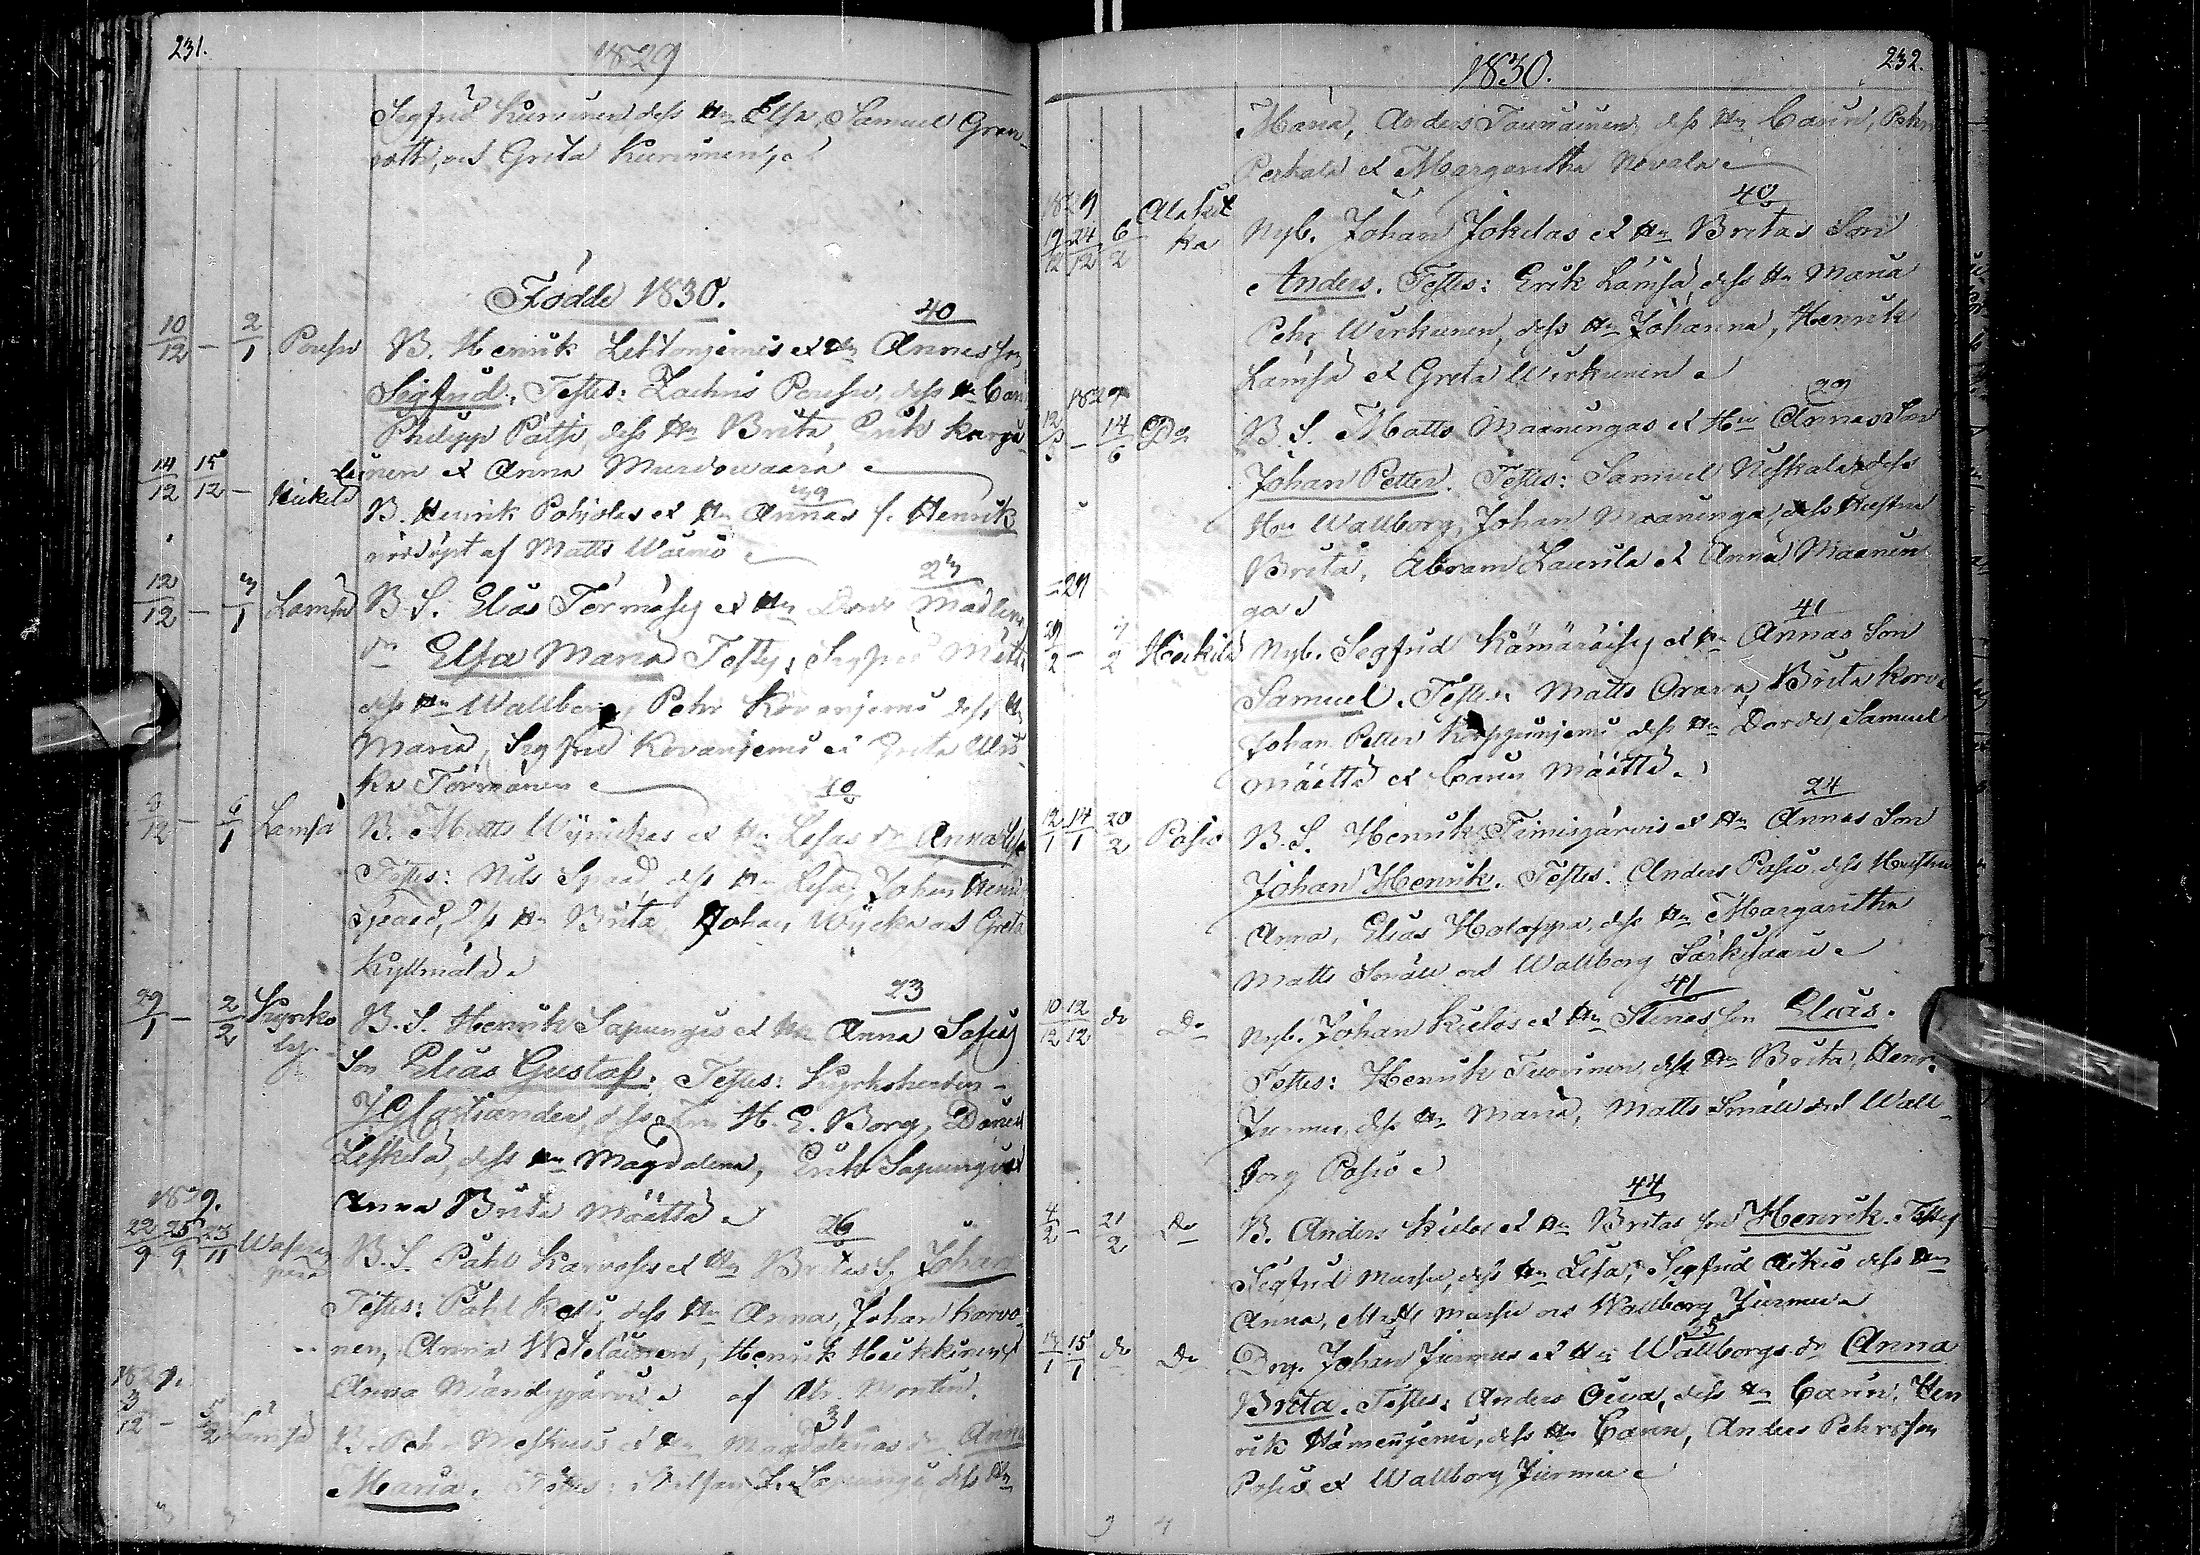 231.
1829
Sigfrid Kurvinen, dess Hu Elsa, Samuel Gran-
roth, och Greta Kurvinen,
Födde 1830.
40
10/12 – 2/1 Poussu B. Henrik Lehtoniemis et Hu Annas son
Sigfrid. Testes: Zachris Poussu, dess Hu Carin
Philipp Pätsi, dess Hu Brita, Erik Karja-
lainen et Anna Murdowaara
39
14/12 15/12 – Heikilä B. Henrik Pohjolas et Hu Annas s. Henrik
nöddöpt af Matts Wäinö
23
12/12 – 3/1 Lämsä B.S. Elias Törmäses et Hu Madlena
dr Elsa Maria Testes: Sigfrid Mättä
dess Hu Wallborg, Pehr Kovaniemi dess Hu
Maria, Sigfrid Kovaniemi et Greta Ulri-
ka Törmänen
40
/12 – 6/1 Lämsä B. Matts Wynickas et Hu Lisas dr Anna Lisa
Testes: Nils Spaad, dess Hu Lisa, Johan Henr.
Spaad, dess Hu Brita, Johan Wijcka och Greta
Kyllmälä
23
29/1 – 2/2 Kyrko by B.S. Henrik Sapungis et Hu Anna Sofias
Son Elias Gustaf. Testes: Kyrkoherden
Costiander, dess Fru H. E. Borg, Daniel
Leskelä, dess Hu Magdalena, Erik Sapungi et
Anna Brita Määttä
1829.
26
22/9 25/9 23/11 B.S. Påhl Karvoses et Hu Britas S. Johan
Testes: Påhl dess Hu Anna, Johan Karvo-
nen, Anna Weteläinen, Henrik Heikkinen et
Anna Mändyjärvi af Ab. Mortin.
1829.
31
3/12 – 5/2 Lämsä B. Pehr Meskuss et Hu Magdalenas dr Anna
Maria. Testes: Sapungi, dess Hu
232.
1830.
Maria, Anders Taunainen dess Hu Carin, Pehr
Perkala et Margaritha Nevala
1829
40
12/12 24/12 6/2 Alakit ka Nyb. Johan Jokelas et Hu Britas Son
Anders. Testes: Erik Lämsä, dess Hu Maria
Pehr Wirkunen, dess Hu Johanna, Henrik
Lämsä et Greta Wirkunen
1829
29
– 14/6 Do B.S. Matts Maaningas et Hu Annas Son
Johan Petter. Testes: Samuel Niskala, dess
Hu Wallborg, Johan Maaninga, dess Hustru
Brita, Abram Laurila et Anna Maanin-
ga
= 29
41
29/2 – /2 Heikilä Nyb. Sigfrid Kämäräises et Hu Annas Son
Samuel. Testes: Matts Orava, Brita Korva
Johan Petter Korpuniemi dess Hu Dordi, Samuel
Määttä et Carin Määttä
24
12/1 14/1 20/2 Posio B.S. Henrik Timisjärvis et Hu Annas Son
Johan Henrik. Testes: Anders Posio, dess Hustru
Anna, Elias Holappa, dess Hu Margaritha
Matts Smäll och Wallborg Särkiwaara
41
10/12 12/12 do Do Nyb. Johan Kielos et Hu Stinas son Elias.
Testes: Henrik Tuovinen, dess Hu Brita, Henr.
Jurmu, dess Hu Maria, Matts Smäll och Wall-
borg Posio
44
4/2 – 21/2 Do B. Anders Kielos et Hu Britas son Henrik. Testes
Sigfrid Mursu, dess Hu Lisa, Sigfrid Aikio dess Hu
Anna, Matts Mursu och Wallborg Jurmu
25
14/1 15/1 do Do Drg. Johan Jurmus et Hu Wallborgs dr Anna
Brita. Testes: Anders Oiva, dess Hu Carin, Hen
rik Hämeenniemi, dess Hu Carin, Anders Pehrsson
Posio et Wallborg Jurmu